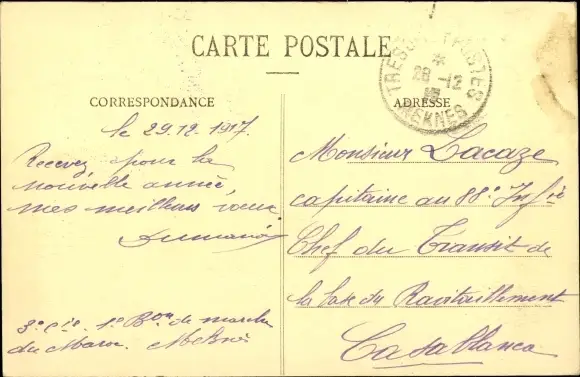 CARTE POSTALE
TRESOR POSTES
*
28-12
MEKNES
CORRESPONDANCE
le 29.12.1917.
Recevez pour la
nouvelle année,
mes meilleurs vœux
3e Cie. 1er Bon de marche
du Maroc. Meknès
ADRESSE
Monsieur Lacaze
capitaine au 88e Infie
Chef du Transit de
la base du Ravitaillement
Casablanca